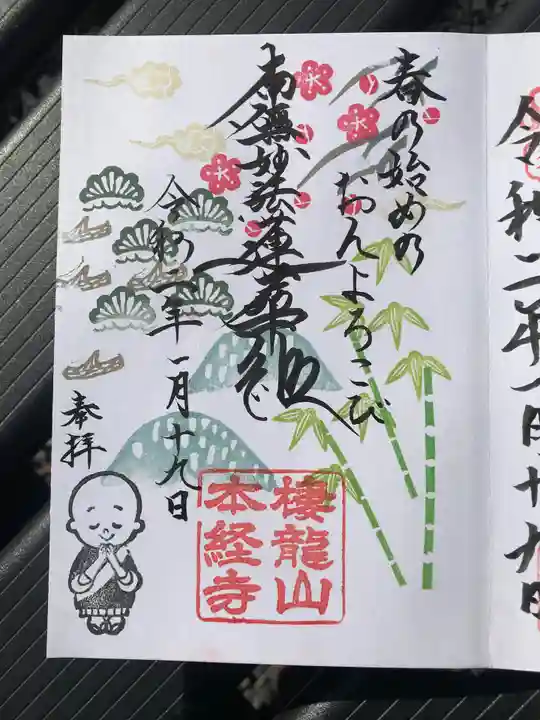 令和二年一月十九日
春の始めの
おんよろこび
南無妙法蓮華経
令和二年一月十九日
奉拝
棲龍山
本経寺